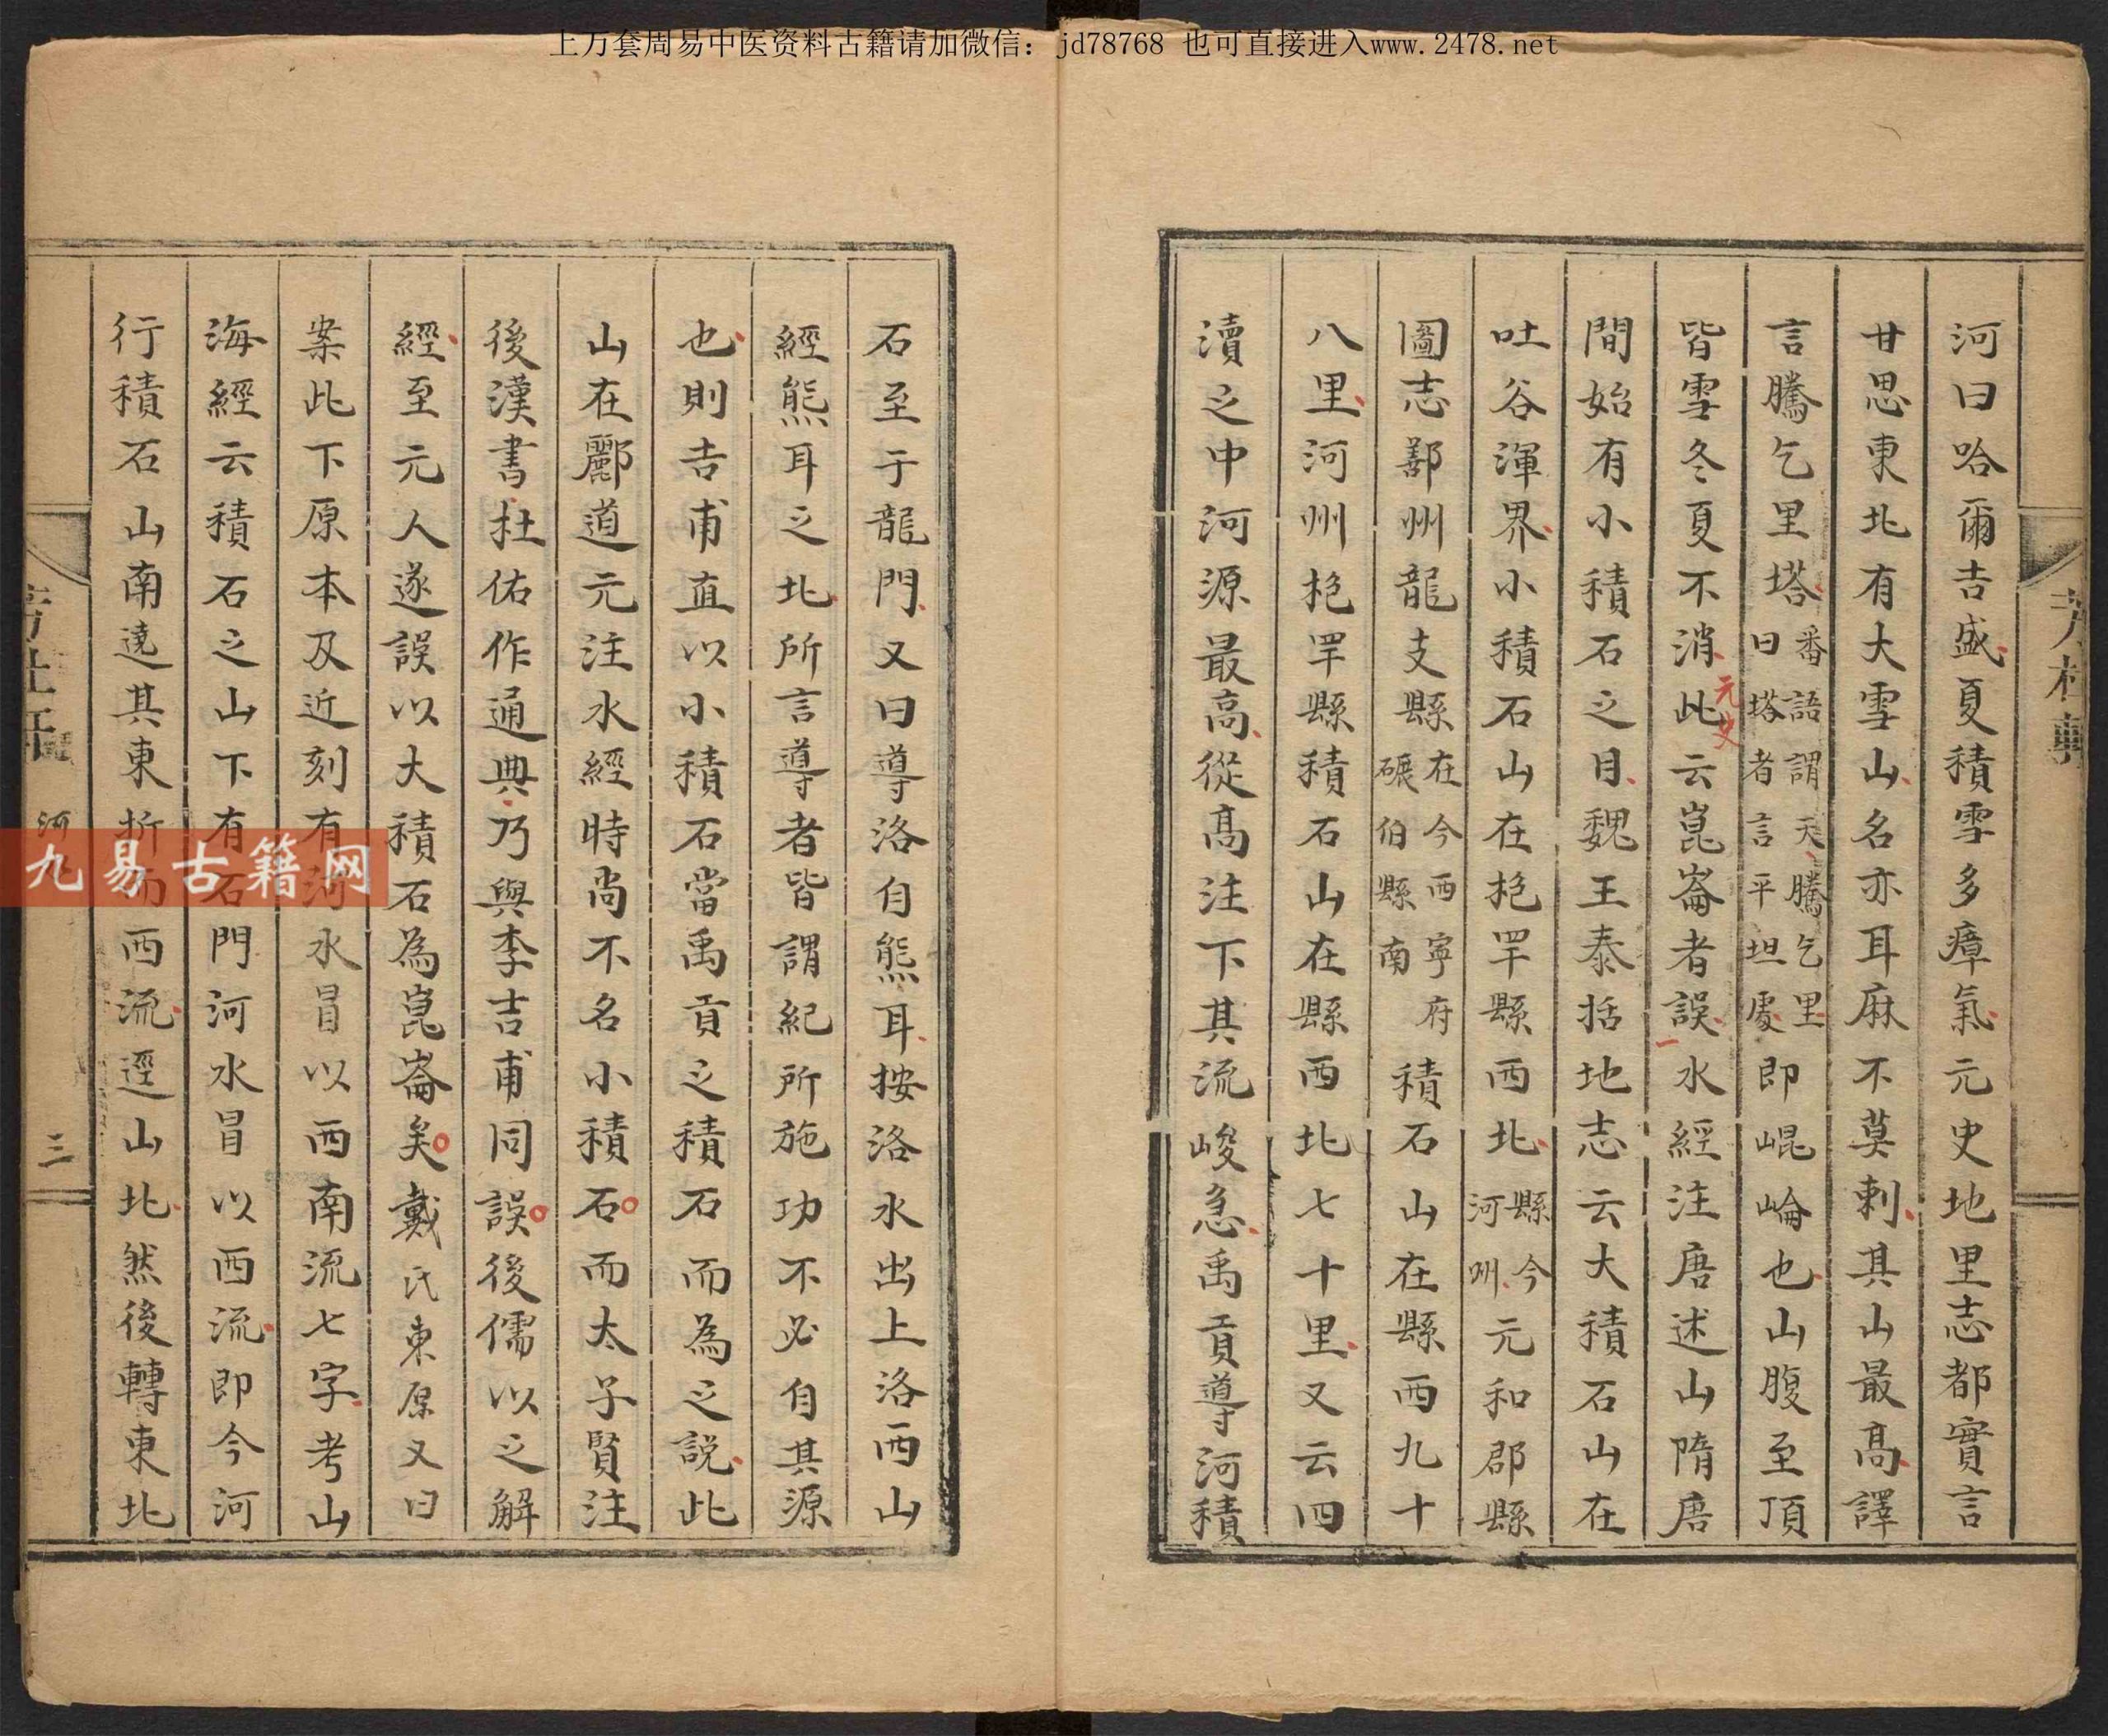 上万套周易中医资料古籍请加微信：jd78768 也可直接进入www.2478.net
河曰哈爾吉盛夏積雪多瘴氣元史地里志都實言
甘思東北有大雪山名亦耳麻不莫剌其山最高譯
言騰乞里塔番語謂天騰乞里曰塔者言平坦處即崐崘也山腹至頂
皆雪冬夏不消此云崑崙者誤水經注唐述山隋唐
元史
間始有小積石之目魏王泰括地志云大積石山在
吐谷渾界小積石山在枹罕縣西北縣今河州元和郡縣
圖志鄯州龍支縣在今西寧府碾伯縣南積石山在縣西九十
八里河州枹罕縣積石山在縣西北七十里又云四
瀆之中河源最高從高注下其流峻急禹貢導河積
石至于龍門又曰導洛自熊耳按洛水出上洛西山
經熊耳之北所言導者皆謂紀所施功不必自其源
也則吉甫直以小積石當禹貢之積石而為之說此
山在酈道元注水經時尚不名小積石而太子賢注
後漢書杜佑作通典乃與李吉甫同誤後儒以之解
經至元人遂誤以大積石為崑崙矣戴氏東原又曰
案此下原本及近刻有河水冒以西南流七字考山
海經云積石之山下有石門河水冒以西流即今河
行積石山南遶其東折而西流逕山北然後轉東北
河
三
九易古籍网